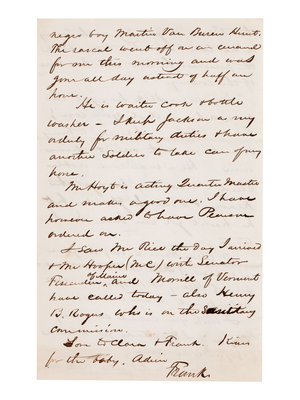 negro boy Martin Van Buren Hunt.
The rascal went off on an errand
for me this morning and was
gone all day instead of half an
hour.
He is waiter cook & bottle
washer – I keep Jackson as my
orderly for military duties & have
another Soldier to take care of my
horse.
Mr Hoyt is acting Quarter Master
and makes a good one. I have
however asked to have
ordered on.
I saw Mr Rice the day I arrived
& Mr Hooper (M.C.) with Senator
Fessenden, and Morrill of Vermont
have called today – also Henry
B. Rogers who is on the Sanitary
commission.
Love to Clara & Frank. Kiss
for the baby. Adieu
Frank